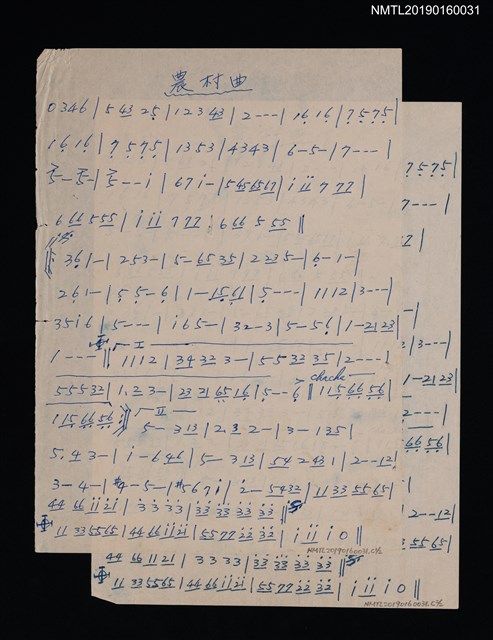 NMTL20190160031
農村曲
0 3 4 6 | 5 43 2 5 | 1 2 3 43 | 2 - - - | 16 16 | 75 75 |
16 16 | 7 5 75 | 1 3 5 3 | 4 3 4 3 | 6 - 5 - | 7 - - - |
5 - 5 - | 5 - - i | 6 7 i - | 5 45 65 17 | i ii 7 77 |
6 66 5 55 | i ii 7 77 | 6 66 5 55 ‖
3 6 1 - | 2 5 3 - | 5 - 65 35 | 2 23 5 - | 6 - 1 - |
2 6 1 - | 5 5 - 6 | 1 - 15 61 | 5 - - - | 1 1 1 2 | 3 - - - |
3 5 i 6 | 5 - - - | i 6 5 - | 3 2 - 3 | 5 - 5 6 | 1 - 21 23 |
1 - - - ‖ I 1 1 1 2 | 34 32 3 - | 5 - 5 32 35 | 2 - - - |
5 5 5 32 | 1. 2 3 - | 23 21 65 16 | 5 - - 6 | chacha 1 15 66 56 |
1 15 66 56 ‖ II 5 - 3 13 | 2. 3 2 - | 3 - 1 35 |
5. 4 3 - | i - 6 46 | 5 - 3 13 | 54 2 43 1 | 2 - - 12 |
3 - 4 - | #4 - 5 - | #5 6 7 i | 2 - 54 32 | 11 33 55 65 |
44 66 ii 2i | 3 3 3 3 | 33 33 33 33 ‖
11 33 55 65 | 44 66 ii 2i | 55 77 22 32 | i ii i 0 ‖
NMTL20190160031.C1/2
7 5 7 5 |
7 - - - |
77 |
3 - - - |
1 - 21 23 |
2 - - - |
66 56 |
2 - - 12 |
33 55 65 |
44 66 11 21 | 3 3 3 3 | 33 33 33 33 ‖
11 33 55 65 | 44 66 ii 2i | 55 77 22 32 | i ii i 0 ‖
NMTL20190160031.C2/2